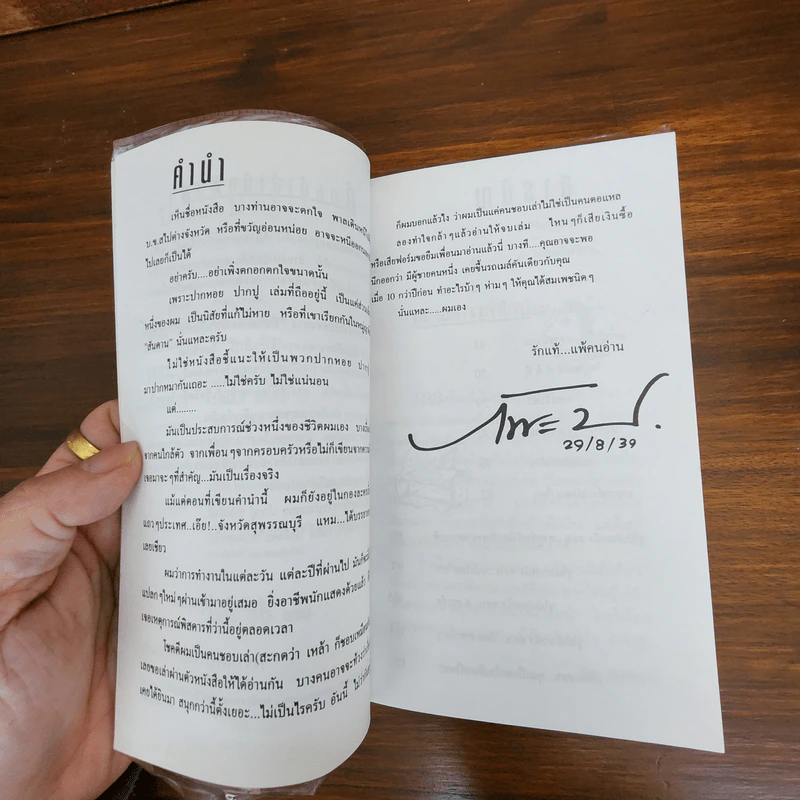 คำนำ
เห็นชื่อหนังสือ บางท่านอาจจะตกใจ พาลเดินหนีไป
บ.ข.สไปต่างจังหวัด หรือที่ขวัญอ่อนหน่อย อาจจะหนีออก
ไปเลยก็เป็นได้
อย่าครับ....อย่าเพิ่งตกอกตกใจขนาดนั้น
เพราะปากหอย ปากปู เล่มที่ถืออยู่นี้ เป็นแค่ส่วน
หนึ่งของผม เป็นนิสัยที่แก้ไม่หาย หรือที่เขาเรียกกันใน
"สันดาน" นั่นแหละครับ
ไม่ใช่หนังสือชี้แนะให้เป็นพวกปากหอย ปากปู
มาปากหมากันเถอะ .....ไม่ใช่ครับ ไม่ใช่แน่นอน
แต่........
มันเป็นประสบการณ์ช่วงหนึ่งของชีวิตผมเอง
จากคนใกล้ตัว จากเพื่อนๆจากครอบครัวหรือไม่ก็เขียนจาก
เจอมาจะๆที่สำคัญ...มันเป็นเรื่องจริง
แม้แต่ตอนที่เขียนคำนำนี้ ผมก็ยังอยู่ในกอง
แถวๆประเทศ..เอ๊ย!..จังหวัดสุพรรณบุรี แหม...ได้
เลยเชียว
ผมว่าการทำงานในแต่ละวัน แต่ละปีที่ผ่านไป มันก็
แปลกๆใหม่ๆผ่านเข้ามาอยู่เสมอ ยิ่งอาชีพนักแสดงด้วยแล้ว
เจอเหตุการณ์พิสดารที่ว่านี้อยู่ตลอดเวลา
โชคดีผมเป็นคนชอบเล่า(สะกดว่า เหล้า ก็ชอบเหมือน
เลยขอเล่าผ่านตัวหนังสือให้ได้อ่านกัน บางคนอาจจะ
เคยได้ยินมา สนุกกว่านี้ตั้งเยอะ...ไม่เป็นไรครับ อันนี้
ก็ผมบอกแล้วไง ว่าผมเป็นแค่คนชอบเล่าไม่ใช่เป็นคนตอแหล
ลองทำใจกล้าๆแล้วอ่านให้จบเล่ม ไหนๆก็เสียเงินซื้อ
หรือเสียฟอร์มขอยืมเพื่อนมาอ่านแล้วนี่ บางที....คุณอาจจะพอ
นึกออกว่า มีผู้ชายคนหนึ่ง เคยขึ้นรถเมล์คันเดียวกับคุณ
เมื่อ 10 กว่าปีก่อน ทำอะไรบ้าๆ ห่ามๆ ให้คุณได้สมเพชนิดๆ
นั่นแหละ.....ผมเอง
รักแท้...แพ้คนอ่าน
29/8/39